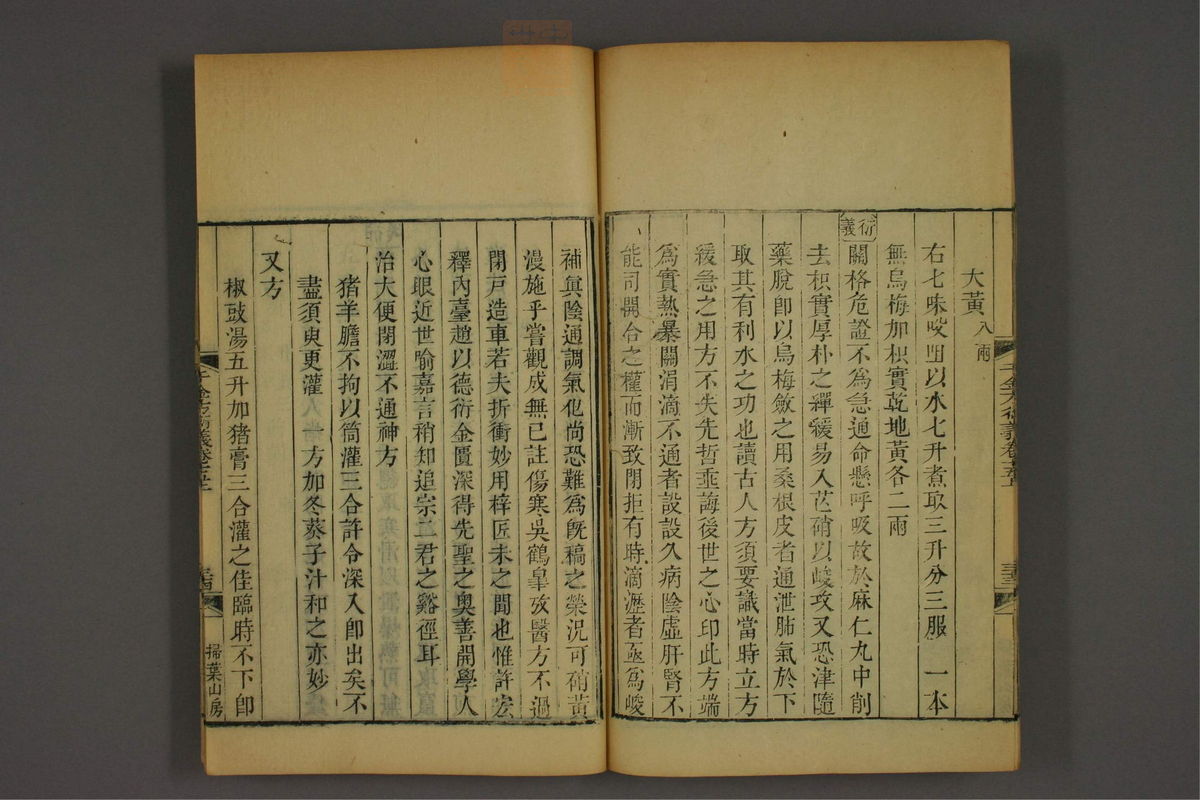 大黃八兩
右七味㕮咀以水七升煮取三升分三服一本
無烏梅加枳實乾地黃各二兩
衍義
關格危證不爲急通命懸呼吸故於麻仁丸中削
去枳實厚朴之繟緩易入芒硝以峻攻又恐津隨
藥脫卽以烏梅斂之用桑根皮者通泄肺氣於下
取其有利水之功也讀古人方須要識當時立方
緩急之用方不失先哲垂誨後世之心印此方端
爲實熱暴關涓滴不通者設設久病陰虛肝腎不
能司開合之權而漸致閉拒有時滴瀝者亟爲峻
補眞陰通調氣化尚恐難爲旣稿之榮況可硝黃
漫施乎嘗觀成無已註傷寒吳鶴臯攷醫方不過
閉戶造車若夫折衝妙用梓匠未之聞也惟許宏
釋內臺趙以德衍金匱深得先聖之奧善開學人
心眼近世喻嘉言稍知追宗二君之谿徑耳
治大便閉澀不通神方
猪羊膽不拘以筒灌三合許令深入卽出矣不
盡須臾更灌一方加冬葵子汁和之亦妙
又方
椒豉湯五升加猪膏三合灌之佳臨時不下卽
千金方衍義卷十五
三十三
千金方衍義卷十五
三十四
掃葉山房